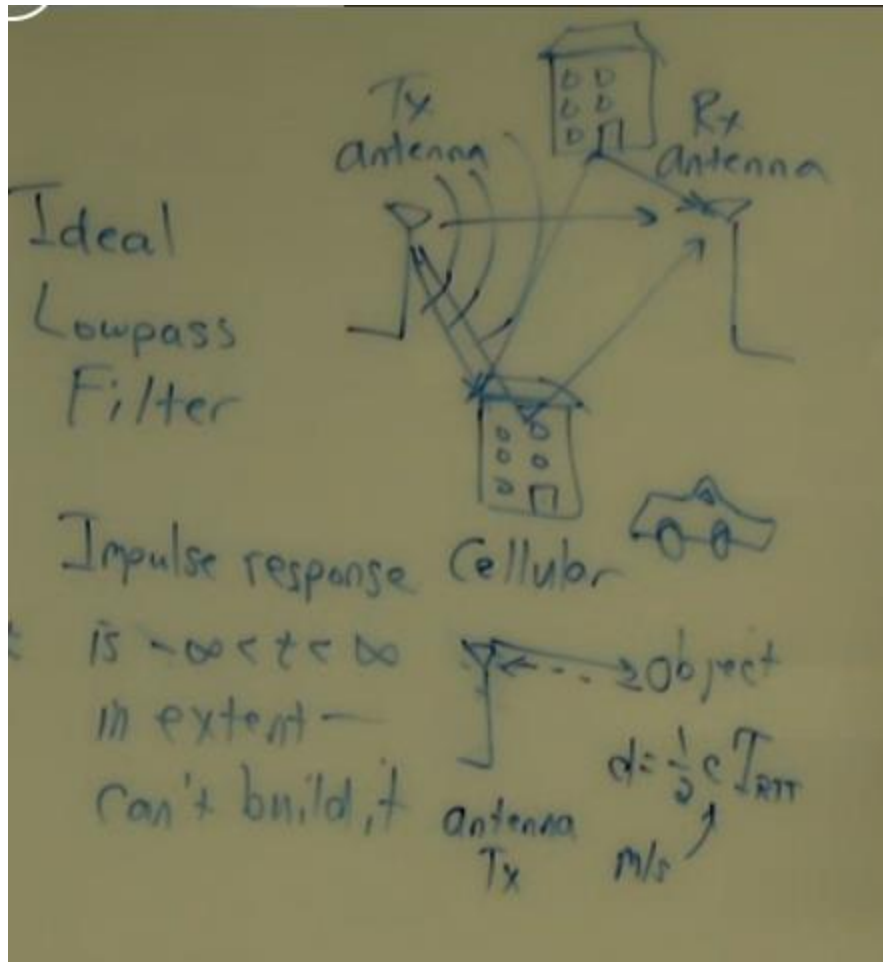 Tx
antenna
Rx
antenna
Ideal
Lowpass
Filter
Impulse response
is -∞ < t < ∞
in extent —
can't build it
Cellular
Object
d = 1/2 c T_RTT
m/s
antenna
Tx